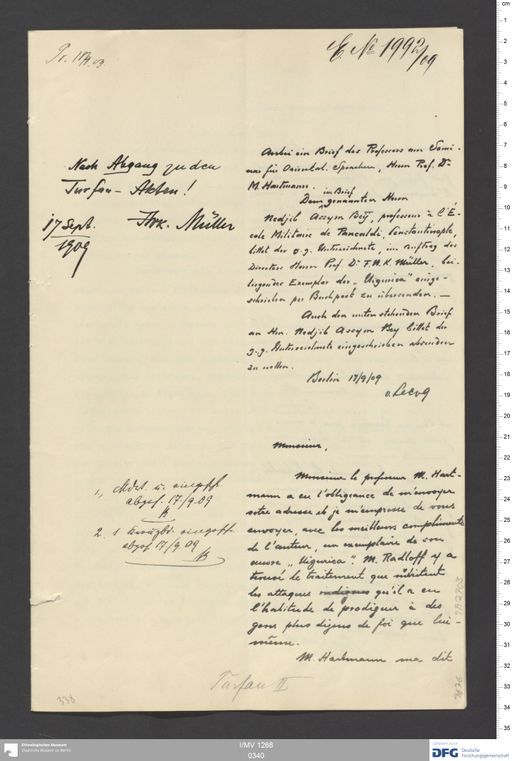 Pr. 17/9.09
E. No 1992/09
Nach Abgang zu den
Turfan-Akten!
17 Sept. Frz. Müller
1909
Anbei ein Brief des Professors am Semi-
nar für Oriental. Sprachen, Herrn Prof. Dr.
M. Hartmann.
im Brief
Dem genannten Herrn
Nedjib Assym Bey, professeur à l'É-
cole Militaire de Pancaldi, Constantinople,
bittet der g. g. Unterzeichnete, im Auftrag des
Direktors Herrn Prof. Dr. F. W. K. Müller, bei-
liegendes Exemplar der „Uigurica" einge-
schrieben per Buchpost zu übersenden. —
Auch den unten stehenden Brief
an Hrn. Nedjib Assym Bey bittet der
g. g. Unterzeichnete eingeschrieben absenden
zu wollen.
Berlin 17/9/09
v. Lecoq
1, u. eingeschr.
abges. 17/9.09
2. 1 Kreuzbd. eingeschr.
abges 17/9.09
Monsieur,
Monsieur le professeur M. Hart-
mann a eu l'obligeance de m'envoyer
votre adresse et je m'empresse de vous
envoyer, avec les meilleurs compliments
de l'auteur, un exemplaire de son
œuvre „Uigurica". M. Radloff y a
trouvé le traitement que méritent
les attaques qu'il a eu
l'habitude de prodiguer à des
gens plus dignes de foi que lui-
même.
M. Hartmann me dit
Turfan II
338
Ethnologisches Museum
Staatliche Museen zu Berlin
I/MV 1268
0340
DFG
Deutsche
Forschungsgemeinschaft